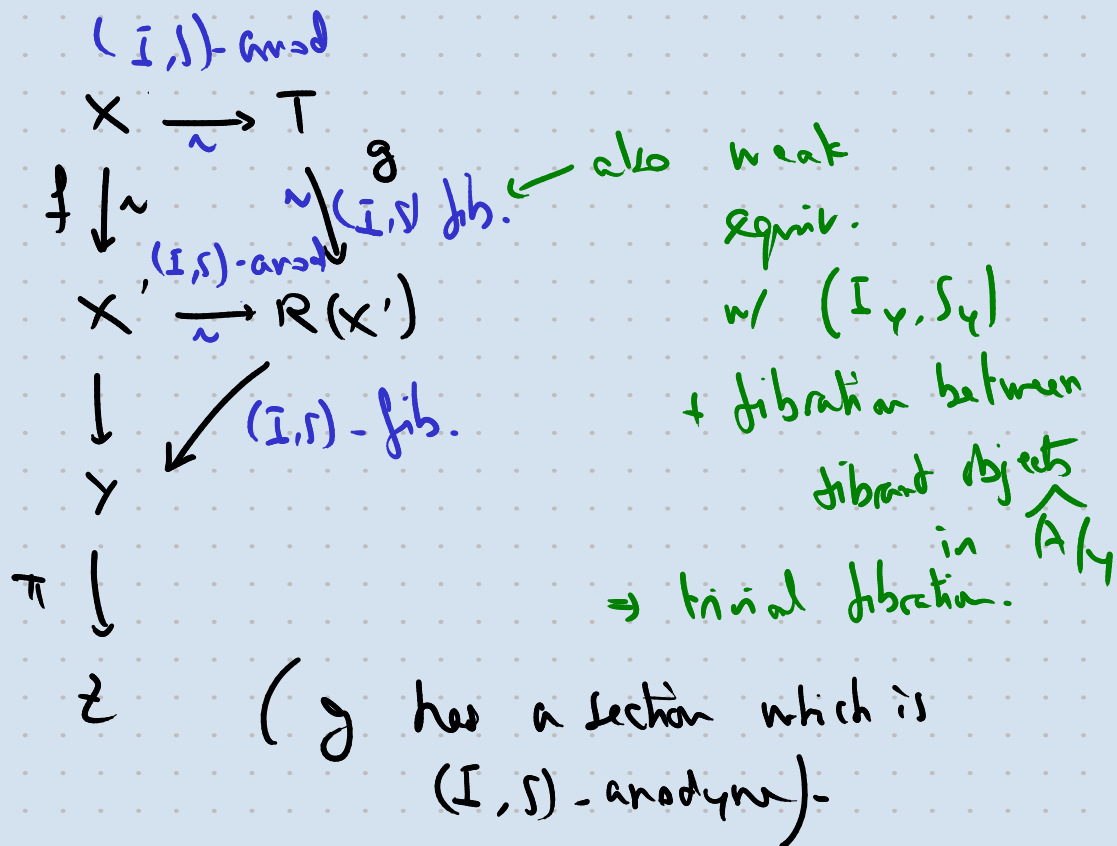 (I,S)-anod
X → T
~
g
f ↓ ~
~ (I,S) fib. ← also weak
equiv.
(I,S)-anod
X' → R(X')
~
w/ (I_Y, S_Y)
+ fibration between
(I,S)-fib.
fibrant objects
Y
in Â/Y
π
⇒ trivial fibration.
Z
(g has a section which is
(I,S)-anodyne)-